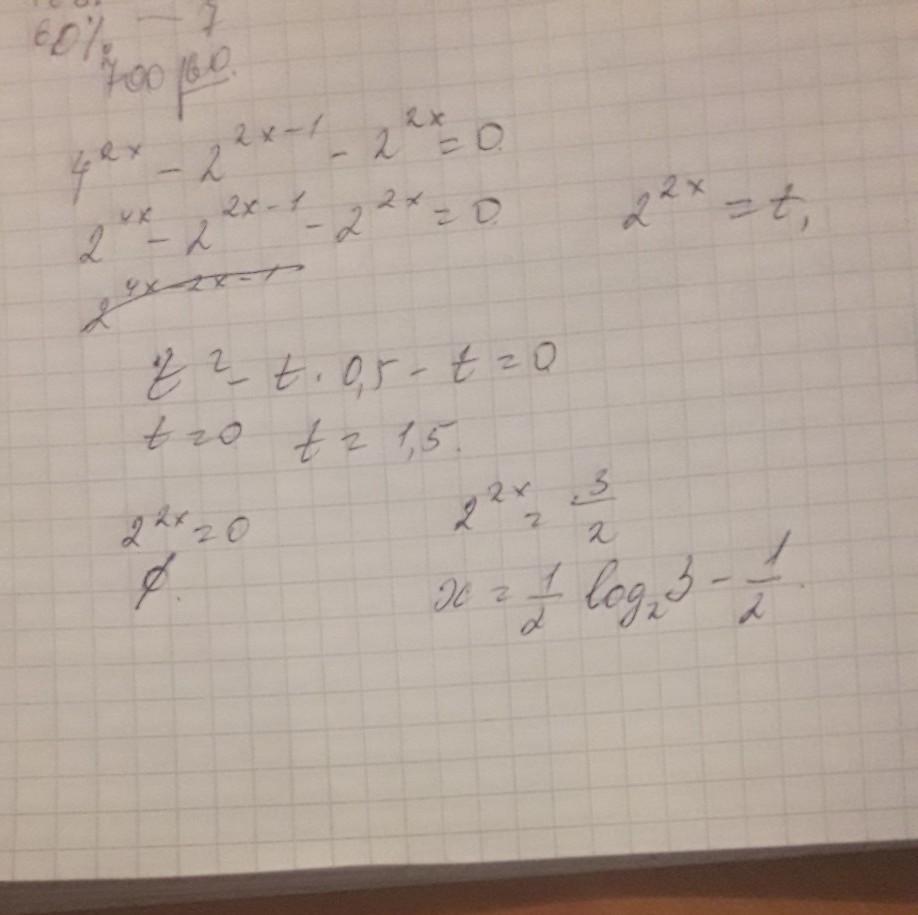 60% — 7
700
4^{2x} - 2^{2x-1} - 2^{2x} = 0
2^{4x} - 2^{2x-1} - 2^{2x} = 0 2^{2x} = t,
2^{4x-2x-1}
t^2 - t · 0,5 - t = 0
t = 0 t = 1,5.
2^{2x} = 0 2^{2x} = \frac{3}{2}
∅. x = \frac{1}{2} log_2 3 - \frac{1}{2}.